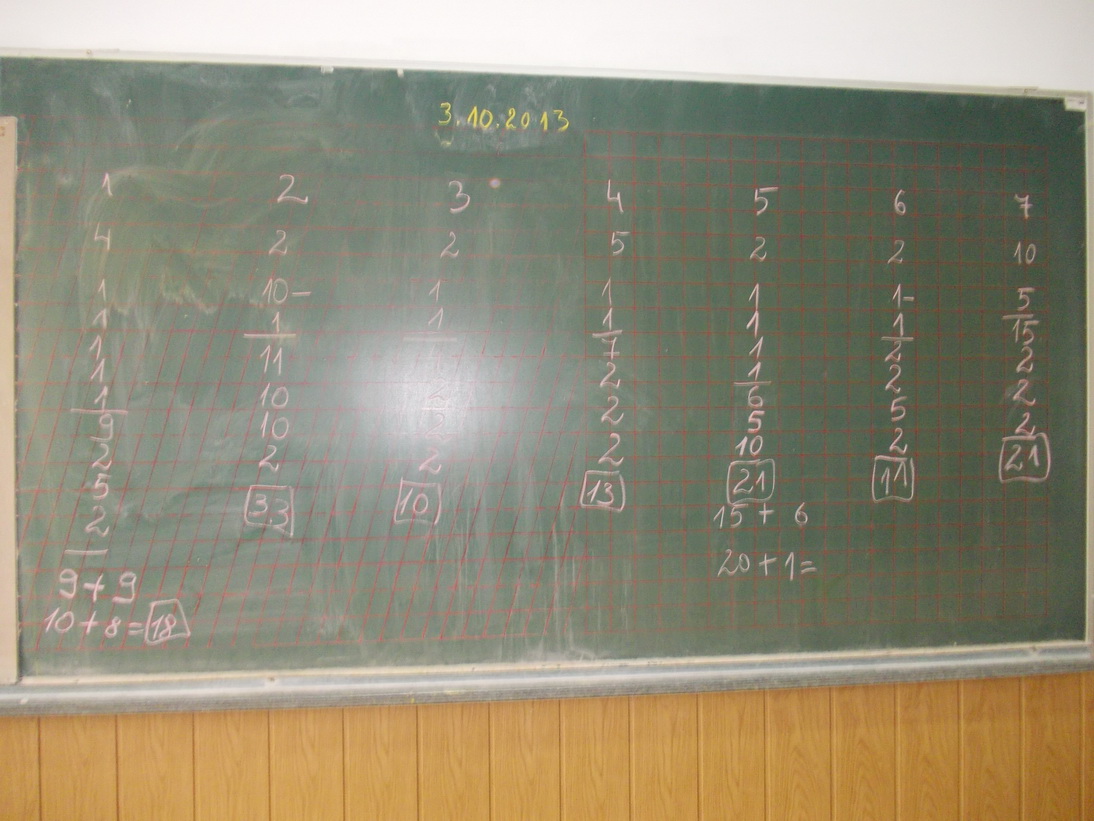 3.10.2013
1 2 3 4 5 6 7
4 2 2 5 2 2 10
1 10- 1 1 1 1- 5
1 1 1 1 1 1 15
1 11 7 1 2 2
1 10 2 1 2 2
1 10 2 2 6 5 2
9 2 2 2 5 2 21
2 33 10 13 10 11
5 21
2 15 + 6
9 + 9 20 + 1 =
10 + 8 = 18